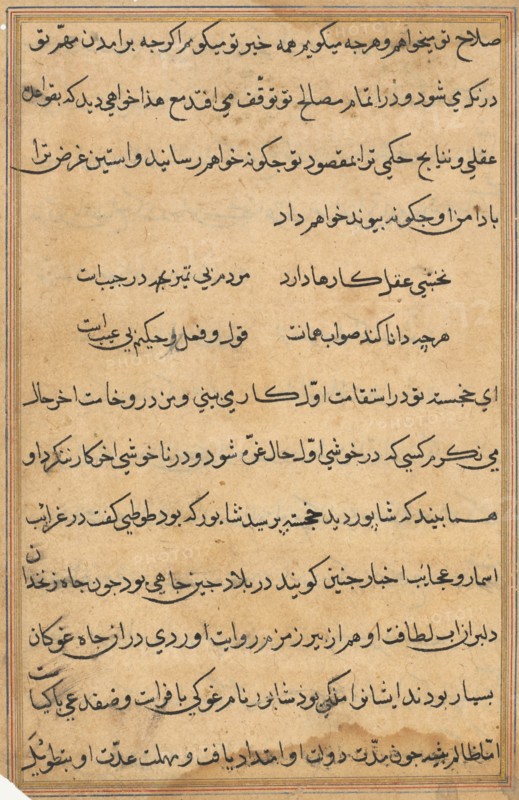 صلاح تو میخواهم و هرچه میکویم همه خیر تو میکویم اکرچه برامدن مهم تو
در نکری شود و در اتمام مصالح تو توقف می افتد مع هذا خواهی دید که بقواعد
عقلی و نتایج حکمی ترا بمقصود تو جکونه خواهم رسانید و استین غرض ترا
با دامن او جکونه بیوند خواهم داد
نخشبی عقل کارها دارد مردم بی تمیز در جیب است
هرچه دانا کند صواب همانست قول و فعل حکیم بی عیب است
ای خجسته تو در استقامت اول کار می بینی و من در وخامت اخر حال
می نکرم کسی که در خوشی اول حال غره شود و در ناخوشی اخر کار ننکرد او
همان بیند که شابور دید خجسته برسید شابور که بود طوطی کفت در غرایب
اسمار و عجایب اخبار جنین کویند در بلاد جین جاهی بود جون جاه زنخدان
دلبران اب لطافت او هم از بیر زمزم روایت اوردی در ان جاه غوکان
بسیار بودند ایشانرا ملکی بود شابور نام غوکی با فراست و ضفدعی با کیاست
اما ظالم بیشه جون مدت دولت او امتداد یافت و مهلت عدت او بتطویل